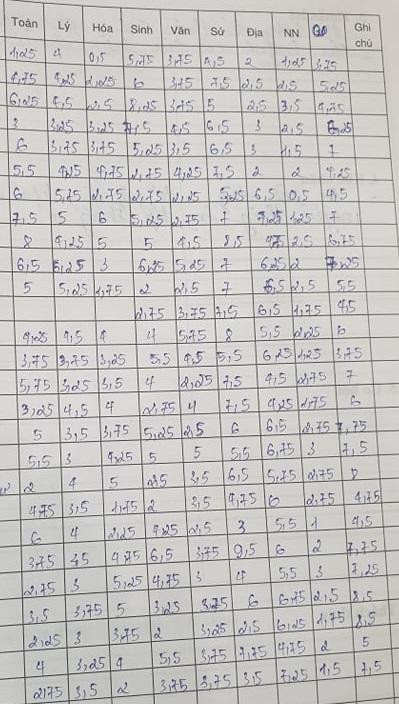 Toán Lý Hóa Sinh Văn Sử Địa NN GD Ghi chú
1,25 4 0,5 5,75 3,75 4,5 2 1,25 3,75
4,75 4,25 2,25 6 3,75 7,5 2,5 2,5 5,25
6,25 4,5 2,5 8,25 3,75 5 2,5 3,5 4,75
3 3,25 3,25 7,5 4,5 6,5 3 2,5 6,25
6 3,75 3,75 5,25 3,5 6,5 3 1,5 7
5,5 4,25 4,75 2,75 4,25 7,5 2 2 4,25
6 5,75 2,75 2,75 2,25 5,25 6,5 0,5 4,5
7,5 5 6 5,25 2,75 7 4,25 1,25 7
8 4,25 5 5 4,5 8,5 2,5 6,75
6,5 6,25 3 6,25 5,25 7 6,25 2 7,25
5 5,25 1,75 2 2,5 7 6,5 2,5 5,5
2,75 3,75 7,5 6,5 1,75 4,5
4,25 4,5 4 4 5,75 8 5,5 2,25 6
3,75 3,75 3,25 5,5 4,5 5,5 6,25 1,25 3,75
5,75 3,25 3,5 4 2,25 7,5 4,5 2,75 7
3,25 4,5 4 2,75 4 7,5 4,25 1,75 6
5 3,5 3,75 5,25 2,5 6 6,5 2,75 7,75
5,5 3 4,25 5 5 5,5 6,75 3 7,5
2 4 5 2,5 3,5 6,5 5,75 2,75
4,75 3,5 1,75 2 3,5 4,75 6 2,75 4,75
6 4 2,25 4,25 2,5 3 5,5 1 4,5
3,75 3,5 4,75 6,5 3,75 9,5 6 2 7,75
2,75 3 5,25 4,75 3 4 5,5 3 7,25
3,5 3,75 5 3,25 3,75 6 6,75 2,5 8,5
2,25 3 3,75 2 3,25 2,5 6,25 1,75 8,5
4 3,25 4 5,5 3,75 7,75 4,75 2 5
2,75 3,5 2 3,75 3,75 3,5 7,25 1,5 7,5